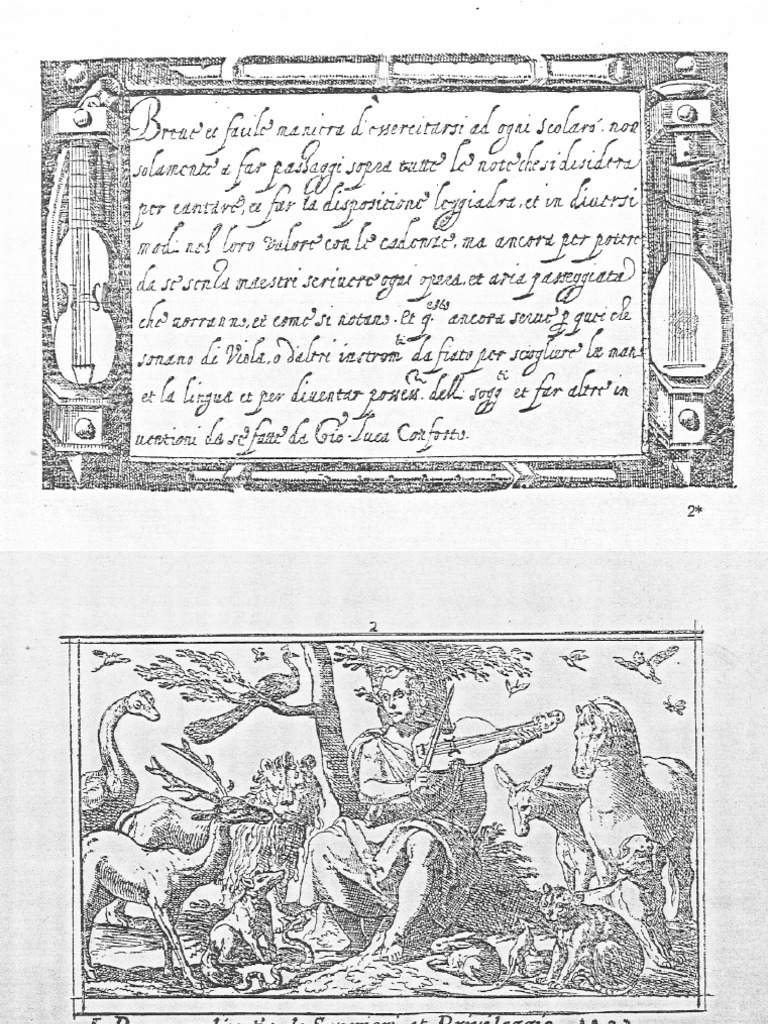 Breue et facile maniera d'essercitarsi ad ogni scolaro. non
solamente a far passaggi sopra tutte le note che si disidera
per cantare, et far la dispositione leggiadra, et in diuersi
modi nel loro valore con le cadenze, ma ancora per potere
da se senza maestri scriuere ogni opera, et aria passeggiata
che uorranno, et come si notano. et q.sto ancora serue p quei che
sonano di Viola, o d'altri instrom.ti da fiato per sciogliere la mano
et la lingua et per diuentar posses.ri delli sogg.ti et far altre in
uentioni da se fatte da Gio. Luca Conforto.
2*
2
Superiori et Priuileggio